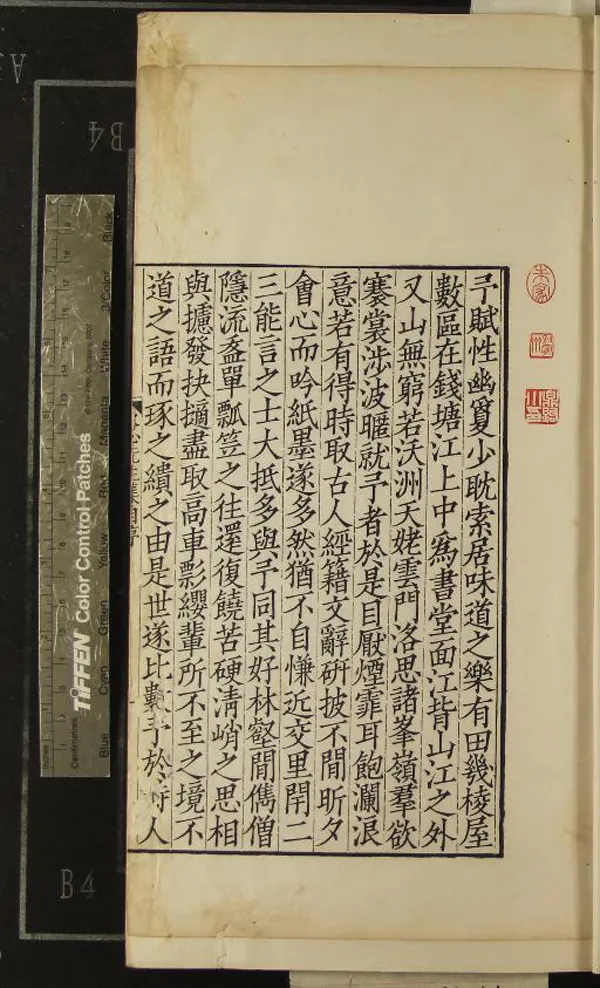 予賦性幽夐少耽索居味道之樂有田幾棱屋
數區在錢塘江上中爲書堂面江背山江之外
又山無窮若沃洲天姥雲門洛思諸峯嶺羣欲
褰裳涉波暱就予者於是目厭煙霏耳飽瀾浪
意若有得時取古人經籍文辭研披不閒昕夕
會心而吟紙墨遂多然猶不自慊近交里閈二
三能言之士大抵多與予同其好林壑閒儁僧
隱流盋單瓢笠之往還復饒苦硬清峭之思相
與攄發抉擿盡取高車影纓輩所不至之境不
道之語而琢之繢之由是世遂比數予於詩人
集自序
TIFFEN Color Control Patches
Blue
Cyan
Green
Yellow
Red
Magenta
White
3/Color
Black
Centimetres
Inches
B4
B4
A3